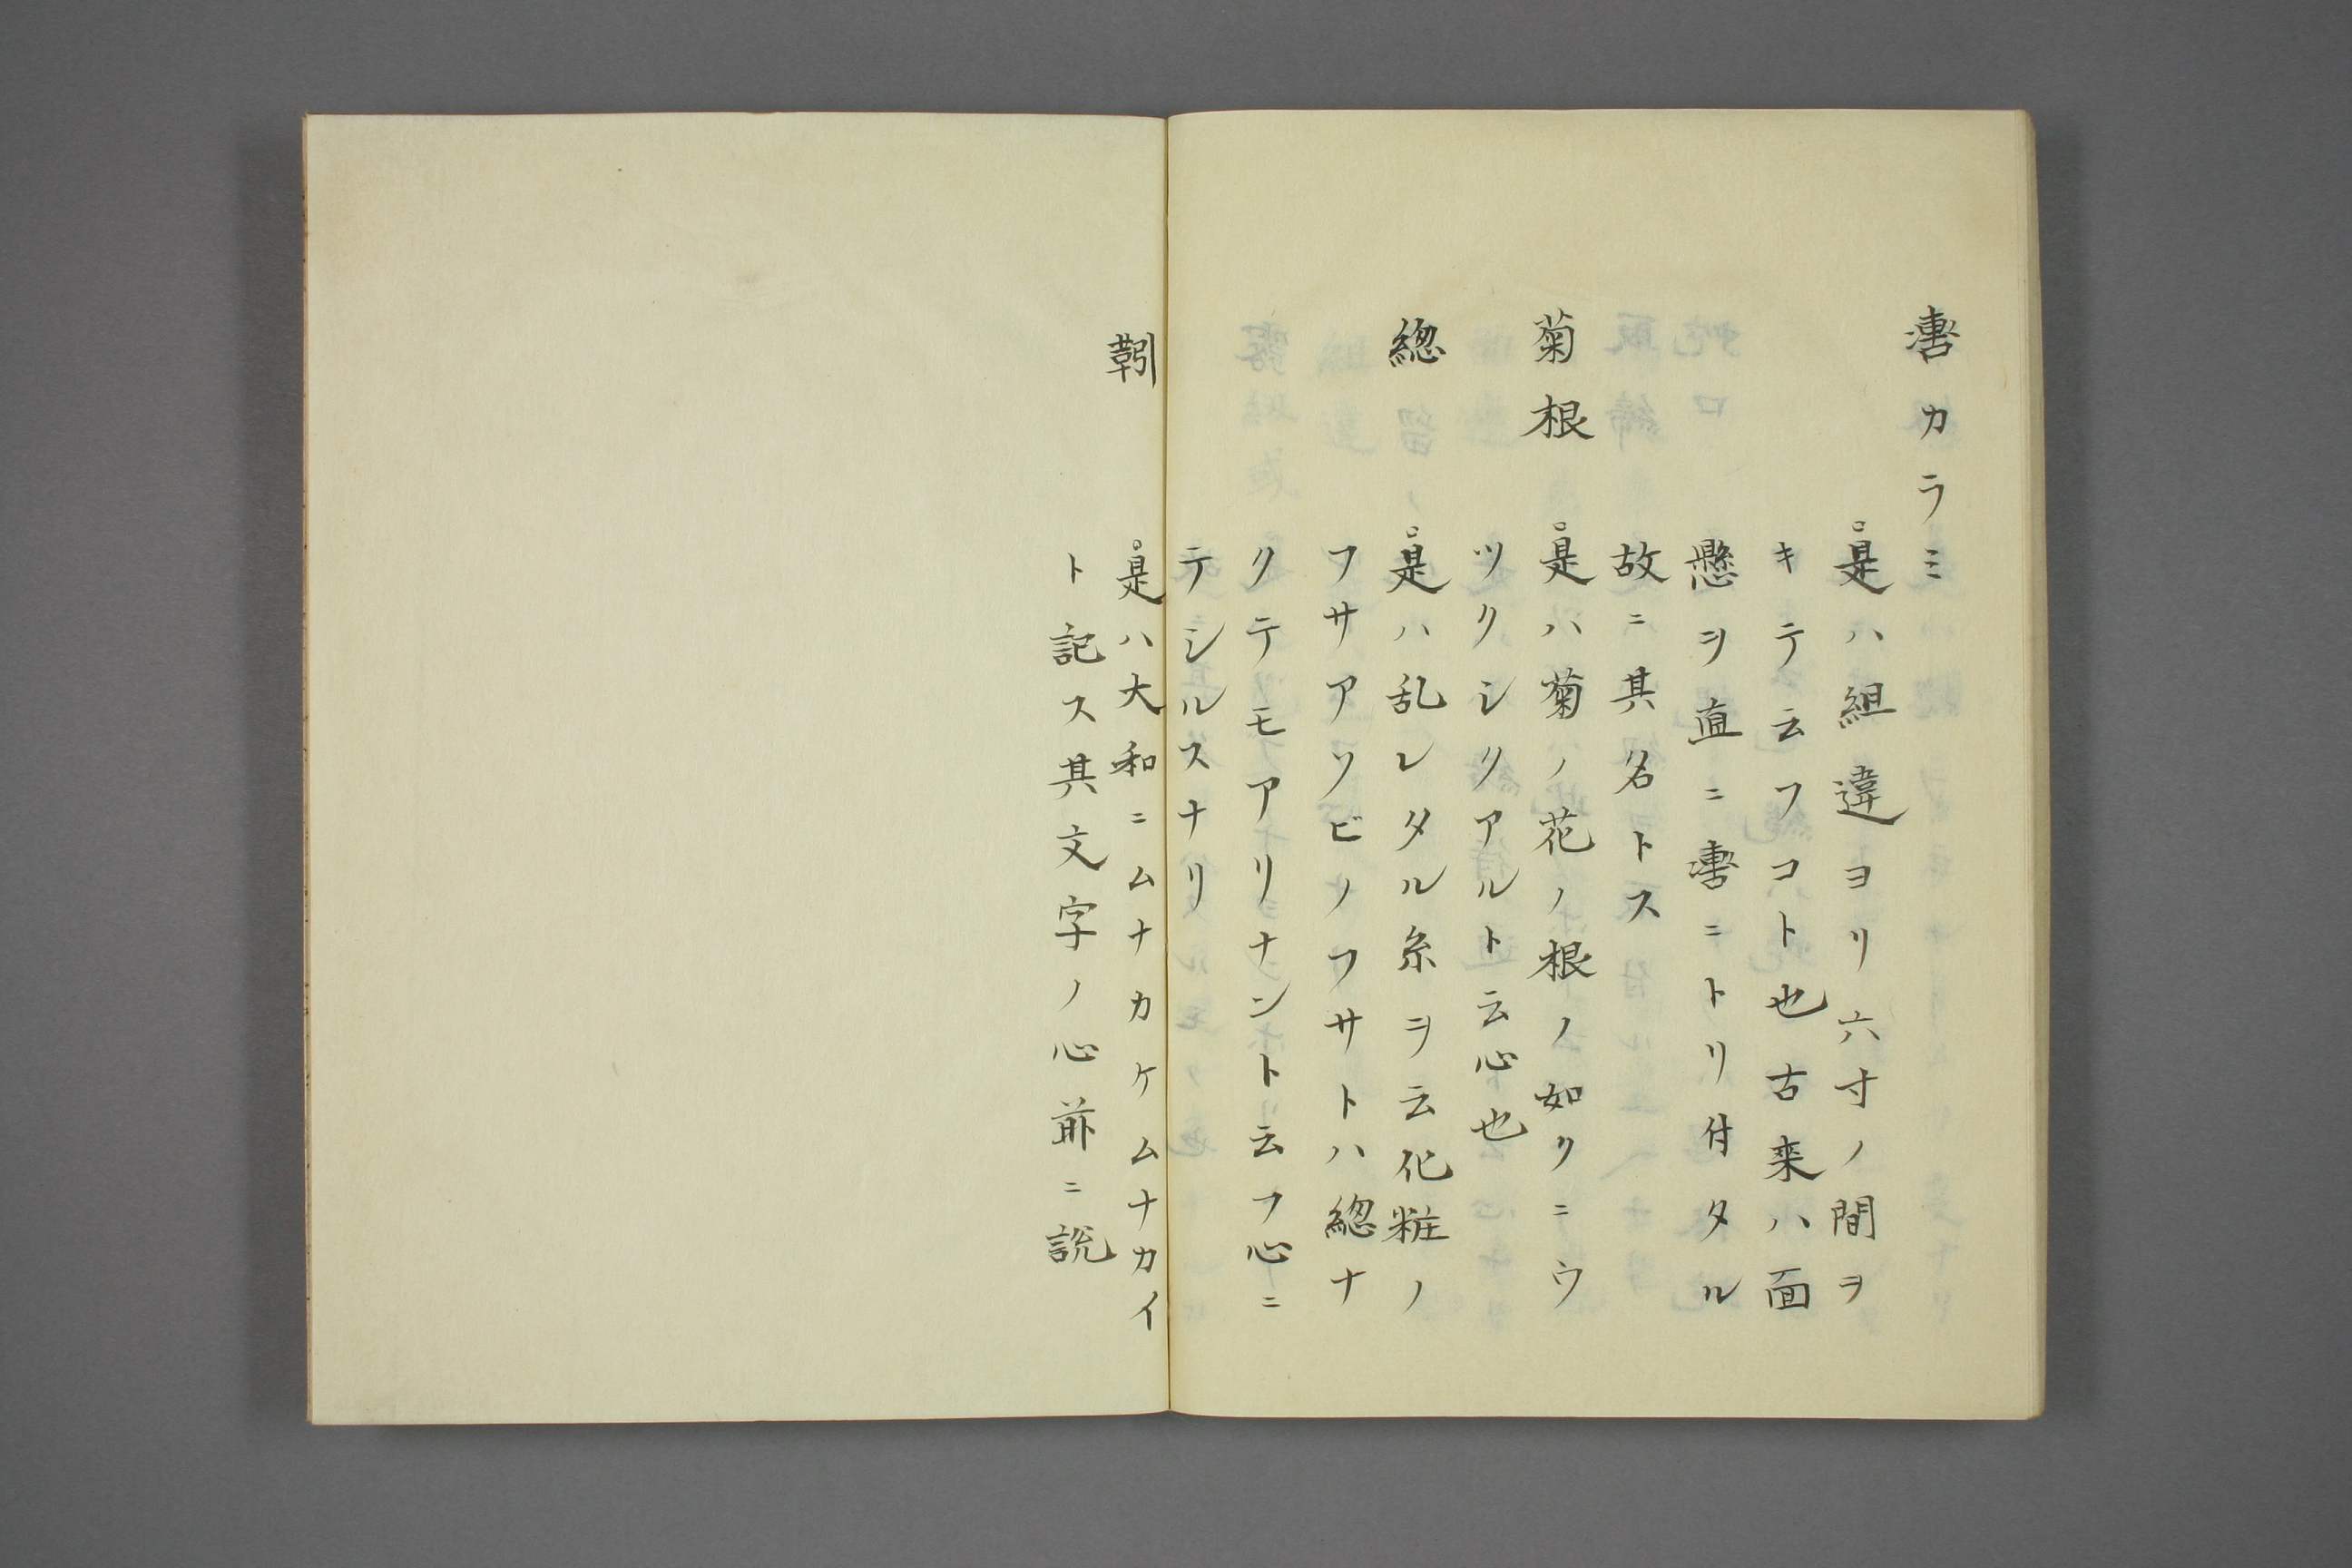 轡カラミ
是ハ組違ヨリ六寸ノ間ヲ
キテ云フコト也古来ハ面
懸ヲ直ニ轡ニトリ付タル
故ニ其名トス
菊根 是ハ菊ノ花ノ根ノ如クニウ
ツクシクアルト云心也
緫 是ハ乱レタル糸ヲ云化粧ノ
フサアソビノフサトハ緫ナ
クテモアリナント云フ心ニ
テシルスナリ
靷 是ハ大和ニムナカケムナカイ
ト記ス其文字ノ心前ニ説